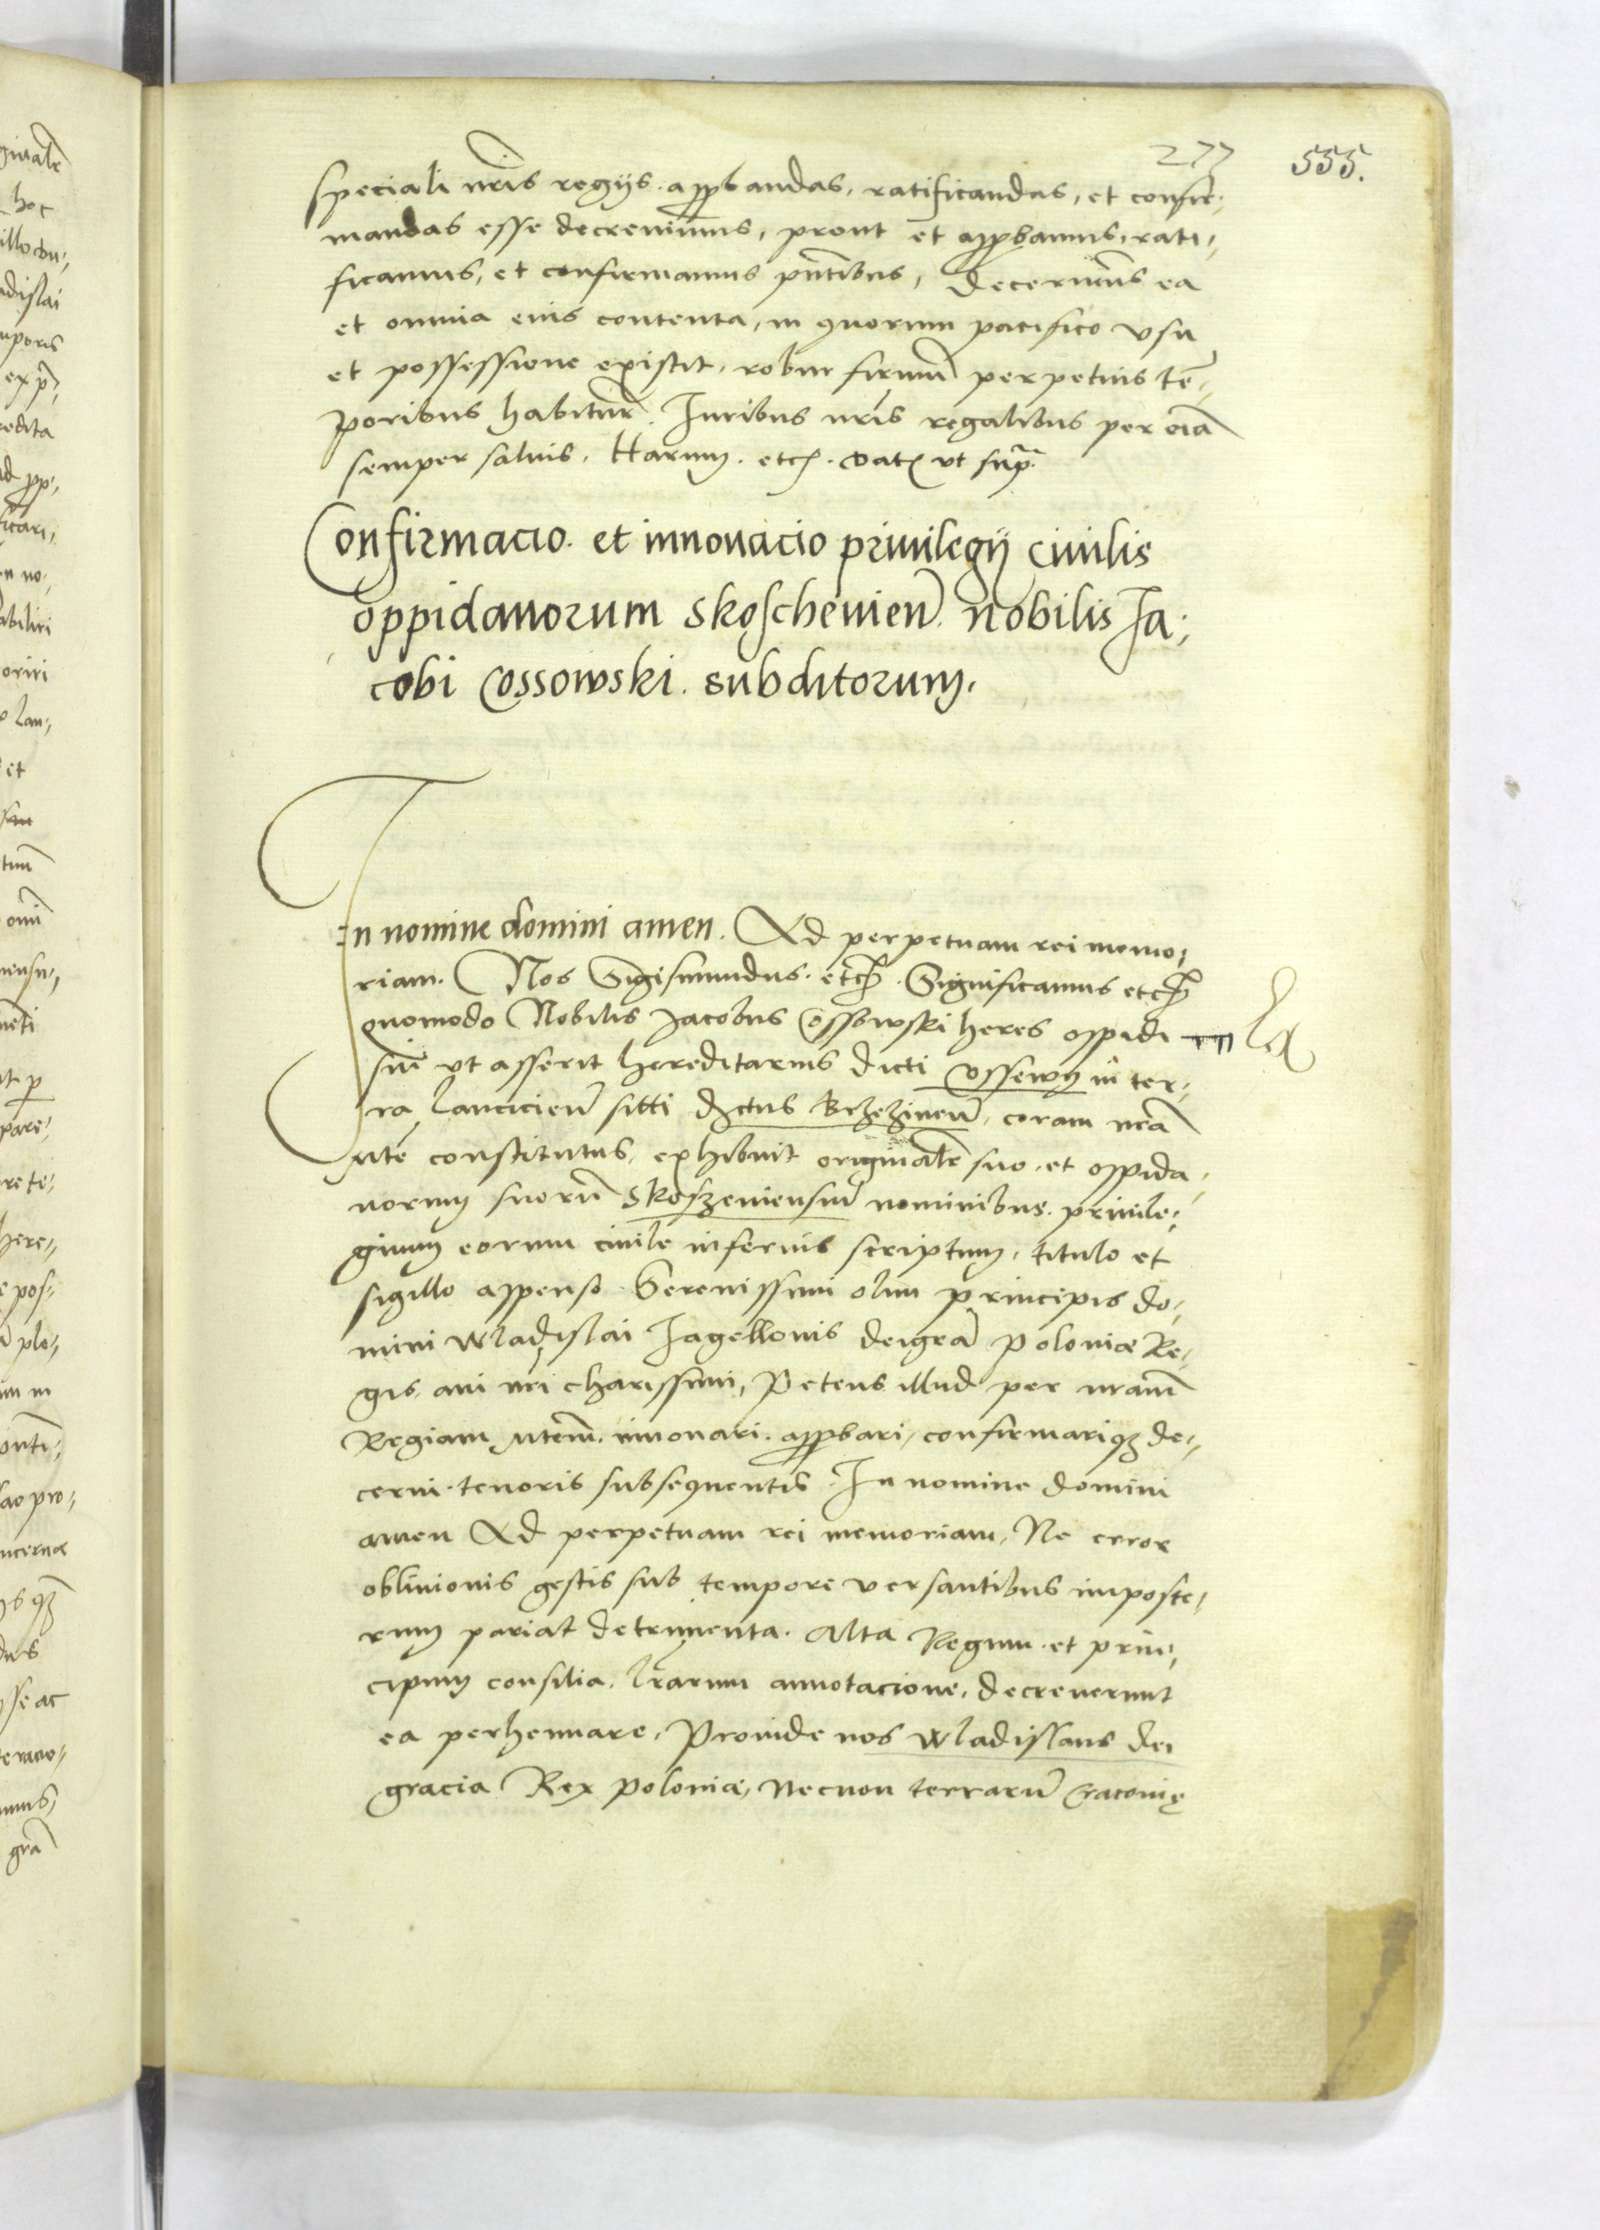 277 555.
speciali nr̃is regijs. approbandas, ratificandas, et confir-
mandas esse decrevimus, prout et approbamus, rati-
ficamus, et confirmamus pn̄tibus, Decernimus ea
et omnia eius contenta, in quorum pacifico usu
et possessione existit, robur firmū perpetuis tē-
poribus habitur̃. Iuribus nr̃is regalibus per oīa
semper salvis. Harum. etc. Dat ut supr̃a
Confirmacio. et innovacio privilegij civilis
oppidanorum Skoschevien̄. nobilis Ja-
cobi Cossowski. subditorum.
In nomine domini amen. Ad perpetuam rei memo-
riam. Nos Sigismundus. etc. Significamus etc
quomodo Nobilis Jacobus Cossowski heres oppidi
sui ut asserit hereditarius dicti Ossewy in ter-
ra Lancicien̄ sitti dictus Brzezinen̄, coram nr̃a
Mte constitutus, exhibuit originale suo. et oppida-
norum suorū Skoszeviensiū nominibus. privile-
gium eorum civile inferius scriptum, titulo et
sigillo appenso Serenissimi olim principis do-
mini Wladislai Jagellonis dei gr̃a Poloniæ Re-
gis, avi nr̃i charissimi, Petens illud per nr̃am
Regiam Mtem. innovari. approbari, confirmariq3 de-
cerni. tenoris subsequentis. In nomine domini
amen Ad perpetuam rei memoriam, Ne error
oblivionis gestis sub tempore versantibus imposte-
rum pariat detrimenta. Alta Regum. et prin-
cipum consilia. lr̃arum annotacione, decreverunt
ea perhennare, Proinde nos Wladislaus dei
gracia Rex Poloniæ, necnon terrarū Cracovię